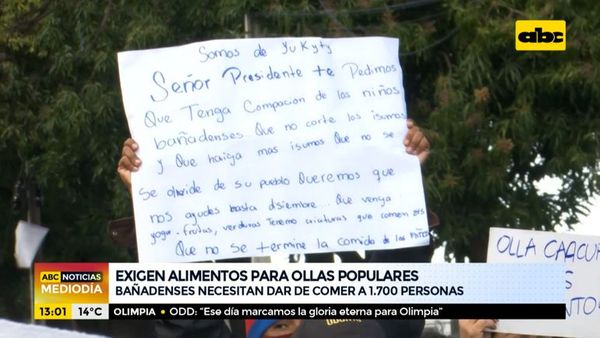 abc
Somos de Yu Kyty
Señor Presidente te Pedimos
Que Tenga Compacion de los niños
bañadenses Que no corte los isumos
y Que haiga mas isumos Que no se
Se olvide de su pueblo Queremos que
nos ayudes hasta dsiembre... Que venga
yogur. frutas, verduras Tenemo criaturas que comen
Que no se termine la comida de los niños
OLLA
ABC NOTICIAS
MEDIODÍA
EXIGEN ALIMENTOS PARA OLLAS POPULARES
BAÑADENSES NECESITAN DAR DE COMER A 1.700 PERSONAS
13:01 14°C OLIMPIA • ODD: "Ese día marcamos la gloria eterna para Olimpia"